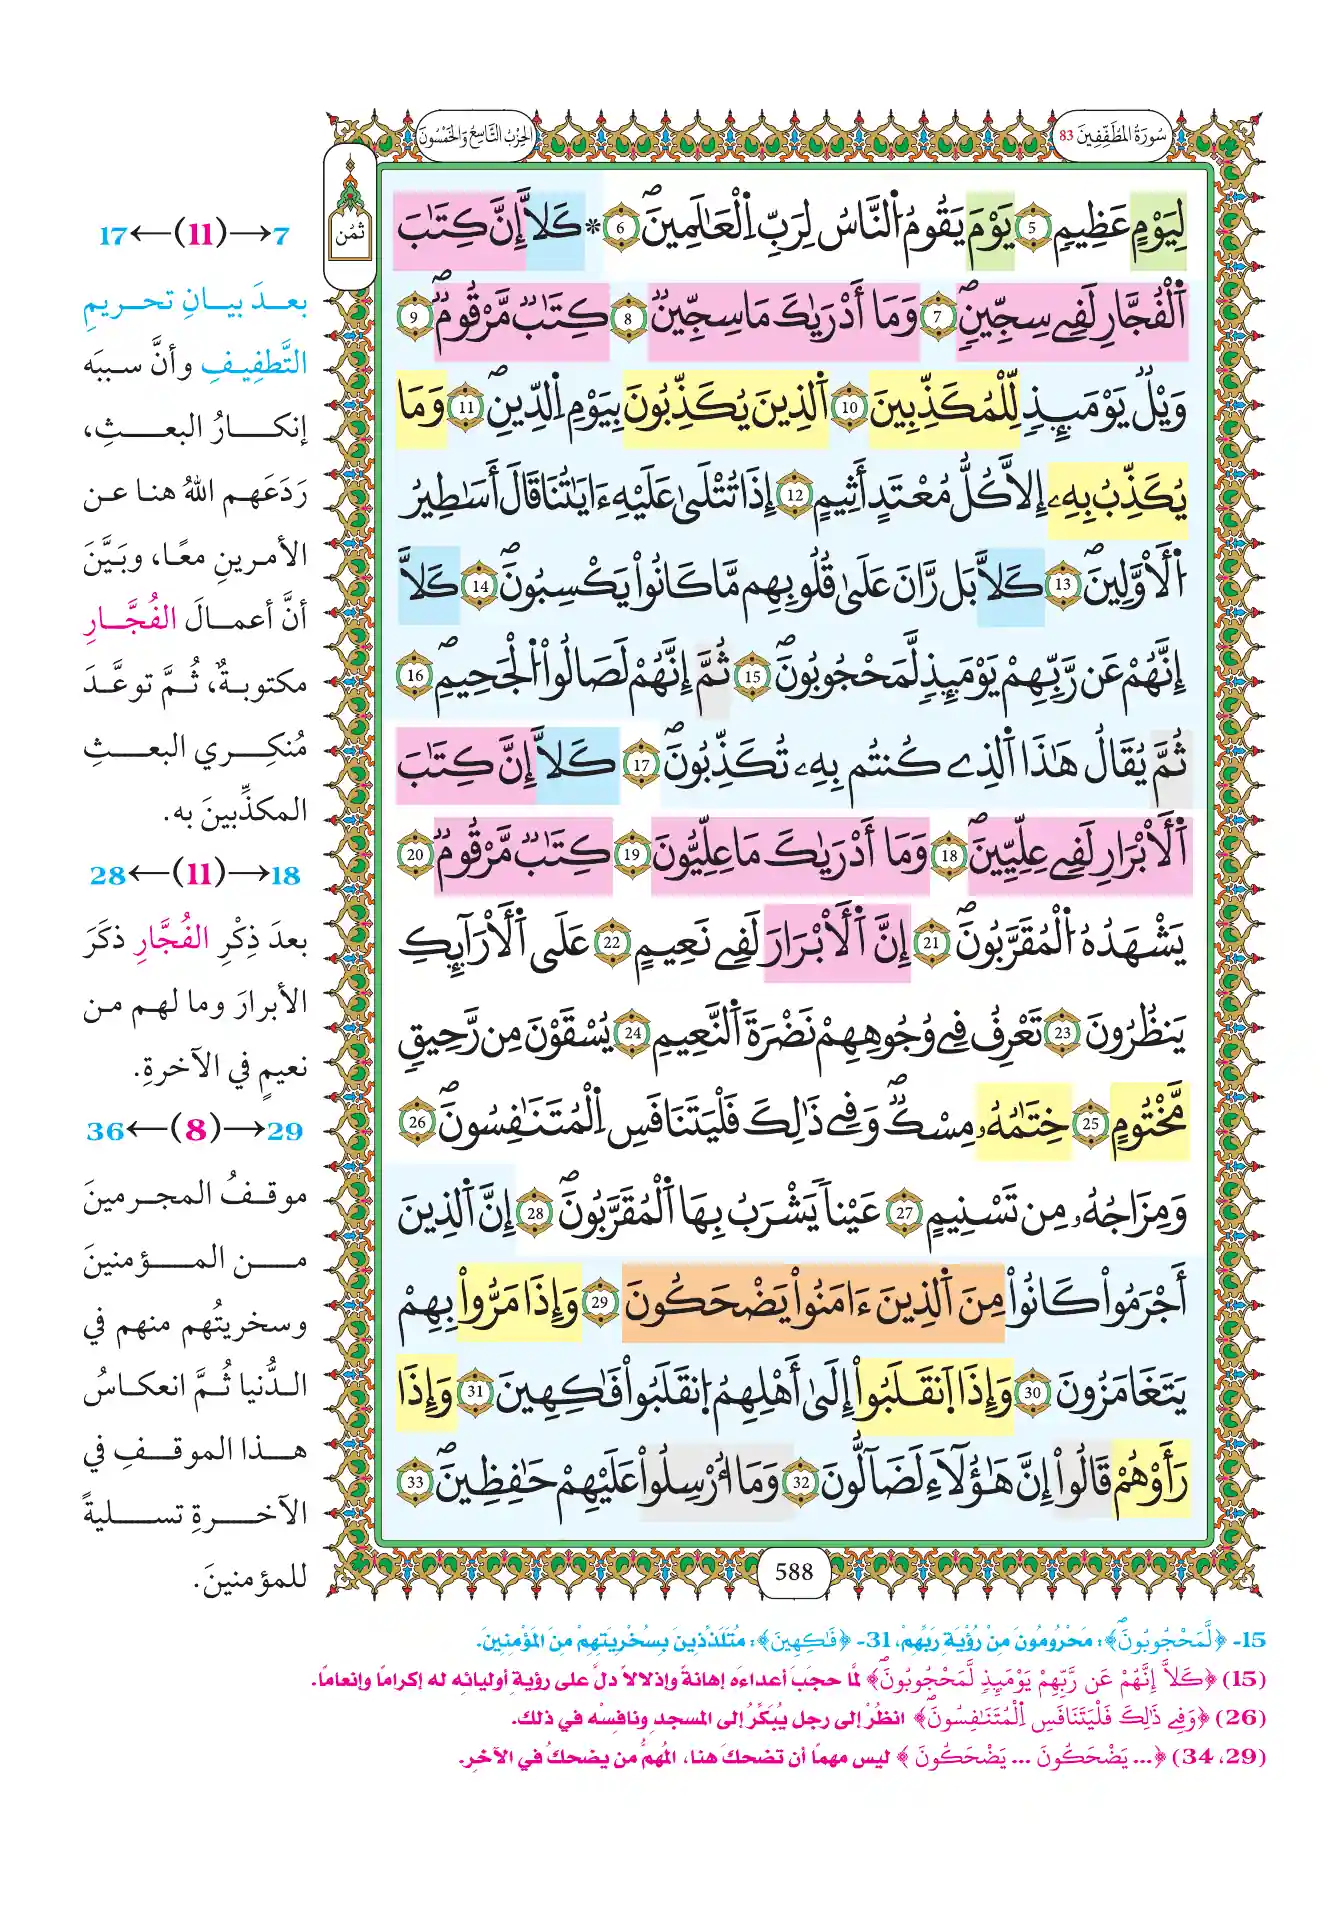 سُورَةُ المُطَفِّفِينَ 83
الحِزْبُ التَّاسِعُ وَالخَمْسُونَ
ثُمُن
لِيَوْمٍ عَظِيمٖ 5 يَوْمَ يَقُومُ اُ۬لنَّاسُ لِرَبِّ اِ۬لْعَٰلَمِينَۖ 6 * كَلَّآ إِنَّ كِتَٰبَ
اَ۬لْفُجَّارِ لَفِے سِجِّينٖۖ 7 وَمَآ أَدْر۪يٰكَ مَا سِجِّينٞۖ 8 كِتَٰبٞ مَّرْقُومٞۖ 9
وَيْلٞ يَوْمَئِذٖ لِّلْمُكَذِّبِينَ 10 اَ۬لذِينَ يُكَذِّبُونَ بِيَوْمِ اِ۬لدِّينِۖ 11 وَمَا
يُكَذِّبُ بِهِۦٓ إِلَّا كُلُّ مُعْتَدٍ أَثِيمٍ 12 إِذَا تُتْلَىٰ عَلَيْهِ ءَايَٰتُنَا قَالَ أَسَٰطِيرُ
اُ۬لَاوَّلِينَۖ 13 كَلَّا بَل رَّانَ عَلَىٰ قُلُوبِهِم مَّا كَانُواْ يَكْسِبُونَۖ 14 كَلَّآ
إِنَّهُمْ عَن رَّبِّهِمْ يَوْمَئِذٖ لَّمَحْجُوبُونَۖ 15 ثُمَّ إِنَّهُمْ لَصَالُواْ اُ۬لْجَحِيمِۖ 16
ثُمَّ يُقَالُ هَٰذَا اَ۬لذِے كُنتُم بِهِۦ تُكَذِّبُونَۖ 17 كَلَّآ إِنَّ كِتَٰبَ
اَ۬لَابْر۪ارِ لَفِے عِلِّيِّينَۖ 18 وَمَآ أَدْر۪يٰكَ مَا عِلِّيُّونَ 19 كِتَٰبٞ مَّرْقُومٞۖ 20
يَشْهَدُهُ اُ۬لْمُقَرَّبُونَۖ 21 إِنَّ اَ۬لَابْرَارَ لَفِے نَعِيمٍ 22 عَلَى اَ۬لَارَآئِكِ
يَنظُرُونَ 23 تَعْرِفُ فِے وُجُوهِهِمْ نَضْرَةَ اَ۬لنَّعِيمِ 24 يُسْقَوْنَ مِن رَّحِيقٖ
مَّخْتُومٍ 25 خِتَٰمُهُۥ مِسْكٞۖ وَفِے ذَٰلِكَ فَلْيَتَنَافَسِ اِ۬لْمُتَنَٰفِسُونَۖ 26
وَمِزَاجُهُۥ مِن تَسْنِيمٍ 27 عَيْناٗ يَشْرَبُ بِهَا اَ۬لْمُقَرَّبُونَۖ 28 إِنَّ اَ۬لذِينَ
أَجْرَمُواْ كَانُواْ مِنَ اَ۬لذِينَ ءَامَنُواْ يَضْحَكُونَ 29 وَإِذَا مَرُّواْ بِهِمْ
يَتَغَامَزُونَ 30 وَإِذَا اَ۪نقَلَبُوٓاْ إِلَىٰٓ أَهْلِهِمُ اُ۪نقَلَبُواْ فَٰكِهِينَ 31 وَإِذَا
رَأَوْهُمْ قَالُوٓاْ إِنَّ هَٰٓؤُلَآءِ لَضَآلُّونَ 32 وَمَآ أُرْسِلُواْ عَلَيْهِمْ حَٰفِظِينَۖ 33
588
7→(11)←17
بعدَ بيانِ تحريمِ
التَّطفِيفِ وأنَّ سببَه
إنكارُ البعثِ،
رَدَعَهم اللهُ هنا عن
الأمرينِ معًا، وبَيَّنَ
أنَّ أعمالَ الفُجَّارِ
مكتوبةٌ، ثُمَّ توعَّدَ
مُنكِري البعثِ
المكذِّبينَ به.
18→(11)←28
بعدَ ذِكْرِ الفُجَّارِ ذكَرَ
الأبرارَ وما لهم من
نعيمٍ في الآخرةِ.
29→(8)←36
موقفُ المجرمينَ
من المؤمنينَ
وسخريتُهم منهم في
الدُّنيا ثُمَّ انعكاسُ
هذا الموقفِ في
الآخرةِ تسليةً
للمؤمنينَ.
15- ﴿لَّمَحْجُوبُونَۖ﴾: مَحْرُومُونَ مِنْ رُؤْيَةِ رَبِّهِمْ، 31- ﴿فَٰكِهِينَ﴾: مُتَلَذِّذِينَ بِسُخْرِيَتِهِمْ مِنَ المُؤْمِنِينَ.
(15) ﴿كَلَّآ إِنَّهُمْ عَن رَّبِّهِمْ يَوْمَئِذٖ لَّمَحْجُوبُونَۖ﴾ لمَّا حجَبَ أعداءَه إهانةً وإذلالاً دلَّ على رؤيةِ أوليائِه له إكرامًا وإنعامًا.
(26) ﴿وَفِے ذَٰلِكَ فَلْيَتَنَافَسِ اِ۬لْمُتَنَٰفِسُونَۖ﴾ انظُرْ إلى رجلٍ يُبَكِّرُ إلى المسجدِ ونافِسْه في ذلك.
(29، 34) ﴿... يَضْحَكُونَ ... يَضْحَكُونَ﴾ ليس مهمًا أن تضحكَ هنا، المُهِمُّ من يضحكُ في الآخرِ.